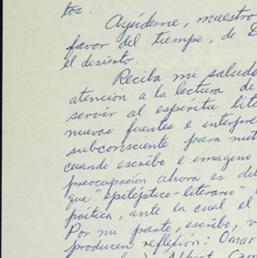 tos.
Ayúdeme, maestro
favor del tiempo, de
el desierto.
Reciba mi saludo
atención a la lectura de
servir al espíritu lite
nuevas fuentes e interpre
subconsciente para
cuando escribo e imagino
preocupación ahora es de
que "epiléptico-literano"
poética, ante la cual el
Por mi parte, escribo, v
producen reflexión: Omar
Albert Cam